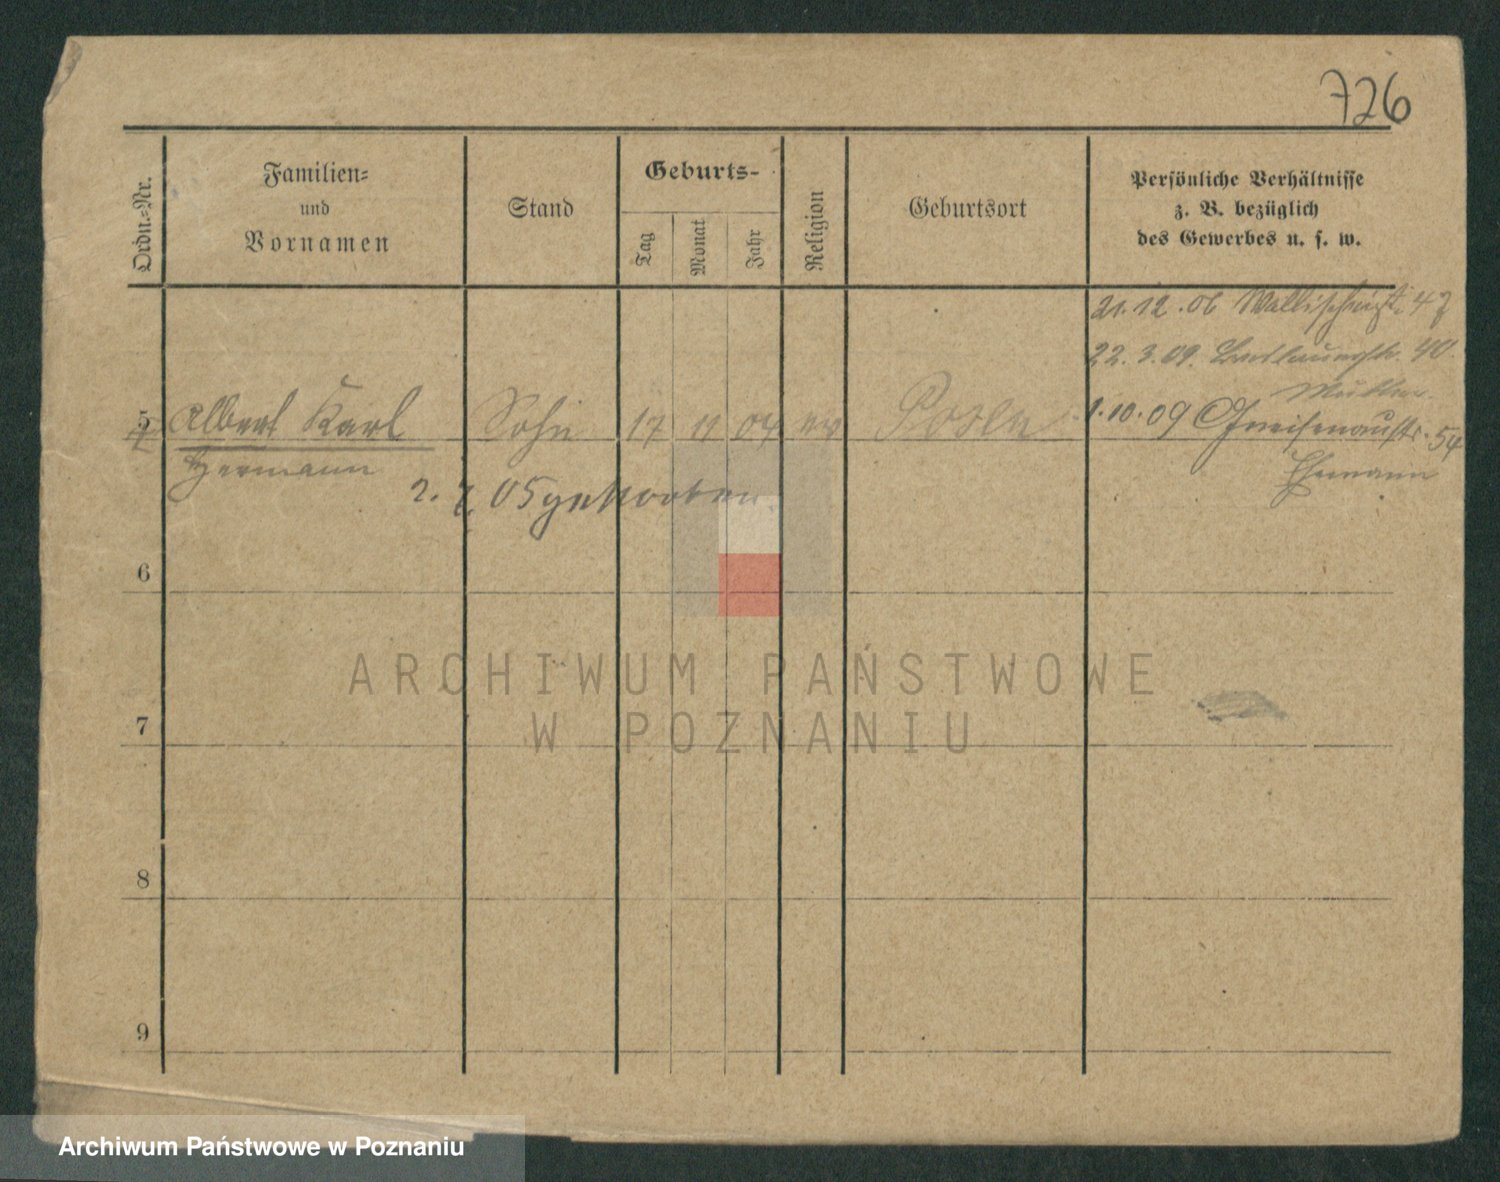 726
Ordn.-Nr.
Familien-
und
Vornamen
Stand
Geburts-
Tag
Monat
Jahr
Religion
Geburtsort
Persönliche Verhältnisse
z. B. bezüglich
des Gewerbes u. s. w.
21.12.06 Wallischeistr. 47
22.3.09. 40.
1.10.09 Gneisenaustr. 54
5 Albert Karl Sohn 17 11 04 ev Posen
Hermann
2. 7. 05 gestorben.
6
7
8
9
ARCHIWUM PAŃSTWOWE
W POZNANIU
Archiwum Państwowe w Poznaniu